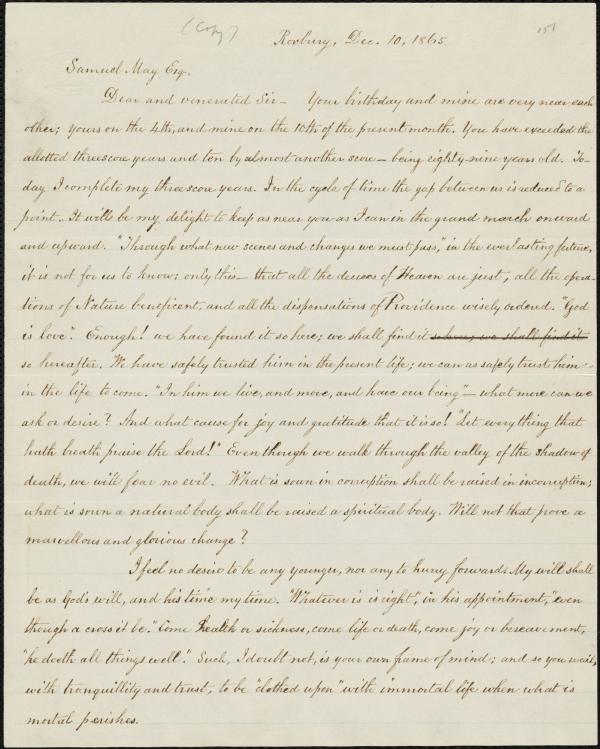 (Copy)
151
Roxbury, Dec. 10, 1865.
Samuel May Esq.
Dear and venerated Sir — Your birthday and mine are very near each
other; yours on the 4th, and mine on the 10th of the present month. You have exceeded the
allotted threescore years and ten by almost another score — being eighty-nine years old. To-
day I complete my threescore years. In the cycle of time the gap between us is reduced to a
point. It will be my delight to keep as near you as I can in the grand march onward
and upward. "Through what new scenes and changes we must pass," in the everlasting future,
it is not for us to know: only this — that all the decrees of Heaven are just, all the opera-
tions of Nature beneficent, and all the dispensations of Providence wisely ordered. "God
is love". Enough! we have found it so here; we shall find it so here, we shall find it
so hereafter. We have safely trusted him in the present life; we can as safely trust him
in the life to come. "In him we live, and move, and have our being" — what more can we
ask or desire? And what cause for joy and gratitude that it is so! "Let everything that
hath breath praise the Lord!" Even though we walk through the valley of the shadow of
death, we will fear no evil. What is sown in corruption shall be raised in incorruption;
what is sown a natural body shall be raised a spiritual body. Will not that prove a
marvellous and glorious change?
I feel no desire to be any younger, nor any to hurry forward. My will shall
be as God's will, and his time my time. "Whatever is is right", in his appointment, "even
though a cross it be." Come health or sickness, come life or death, come joy or bereavement,
"he doeth all things well". Such, I doubt not, is your own frame of mind; and so you wait,
with tranquillity and trust, to be "clothed upon" with immortal life when what is
mortal perishes.